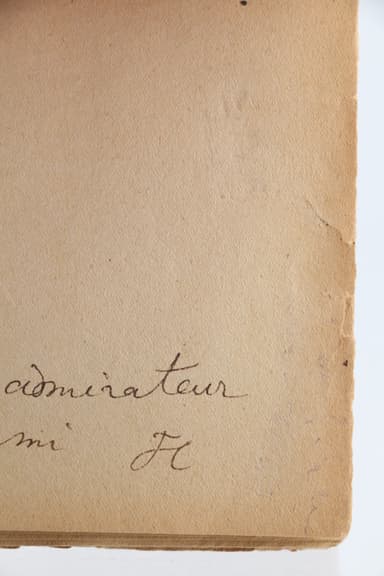 admirateur
mi